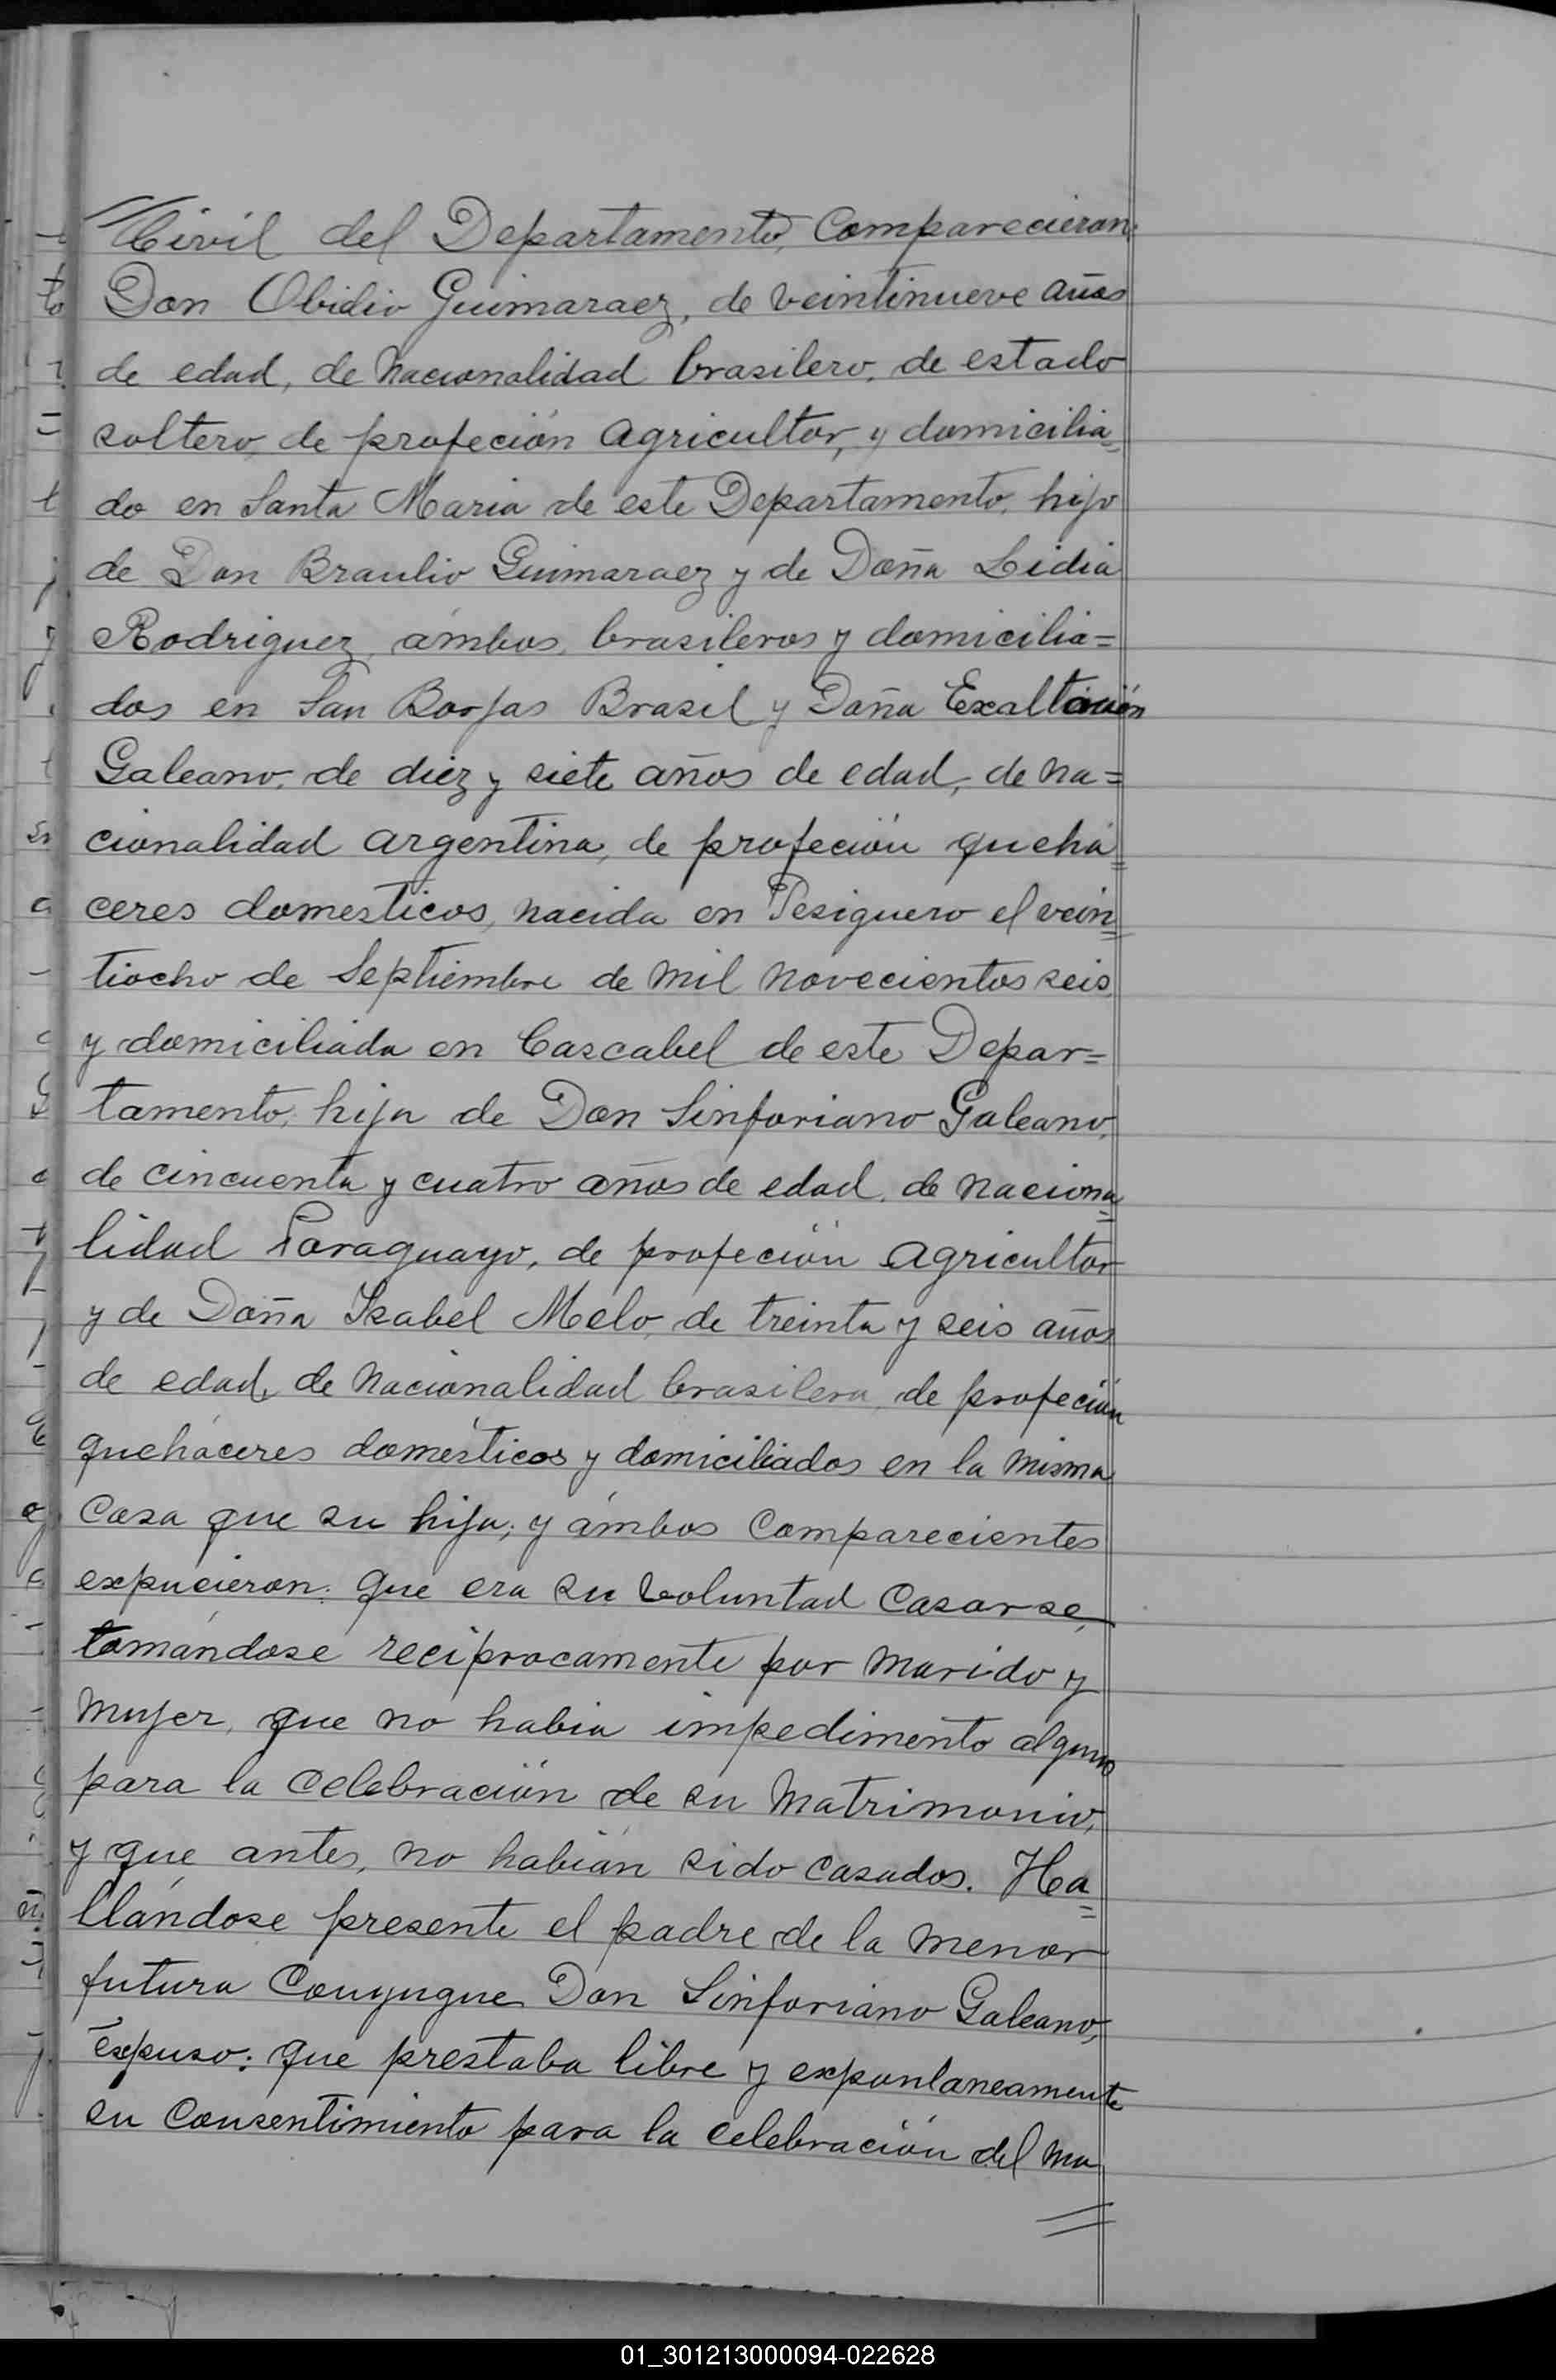 //Civil del Departamento, Comparecieron:
Don Obidio Guimaraez, de veintinueve años
de edad, de nacionalidad brasilero, de estado
soltero, de profeción agricultor, y domicilia=
do en Santa Maria de este Departamento, hijo
de Don Braulio Guimaraez y de Doña Lidia
Rodriguez, ámbos, brasileros y domicilia=
dos en San Borjas Brasil y Doña Exaltación
Galeano, de diez y siete años de edad, de na=
cionalidad argentina, de profeción quehá=
ceres domesticos, nacida en Pesiguero el vein=
tiocho de Septiembre de mil novecientos seis
y domiciliada en Cascabel de este Depar=
tamento, hija de Don Sinforiano Galeano,
de cincuenta y cuatro años de edad, de naciona=
lidad Paraguayo, de profeción agricultor
y de Doña Isabel Melo, de treinta y seis años
de edad, de nacionalidad brasilera, de profeción
queháceres domésticos y domiciliados en la misma
Casa que su hija; y ámbos Comparecientes
expucieron: que era su voluntad Casarse,
tomándose reciprocamente por marido y
mujer, que no habia impedimento alguno
para la Celebración de su matrimonio,
y que antes, no habián sido casados. Ha=
llándose presente el padre de la menor
futura Conyugue Don Sinforiano Galeano,
expuso: que prestaba libre y expontaneamente
su Consentimiento para la celebración del ma
=
01_301213000094-022628